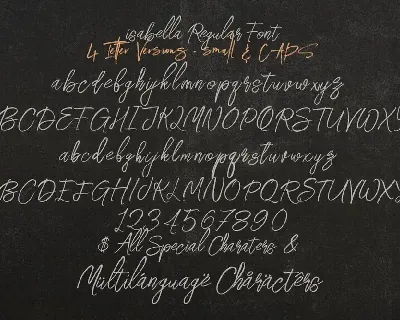 isabella Regular Font
4 letter Versions - small & CAPS
abcdefghijklmnopqrstuvwxyz
ABCDEFGHIJKLMNOPQRSTUVWXY
abcdefghijklmnopqrstuvwxyz
ABCDEFGHIJKLMNOPQRSTUVWXY
1234567890
$ All Special Charaters &
Mültilánguagë Chåräctèrs